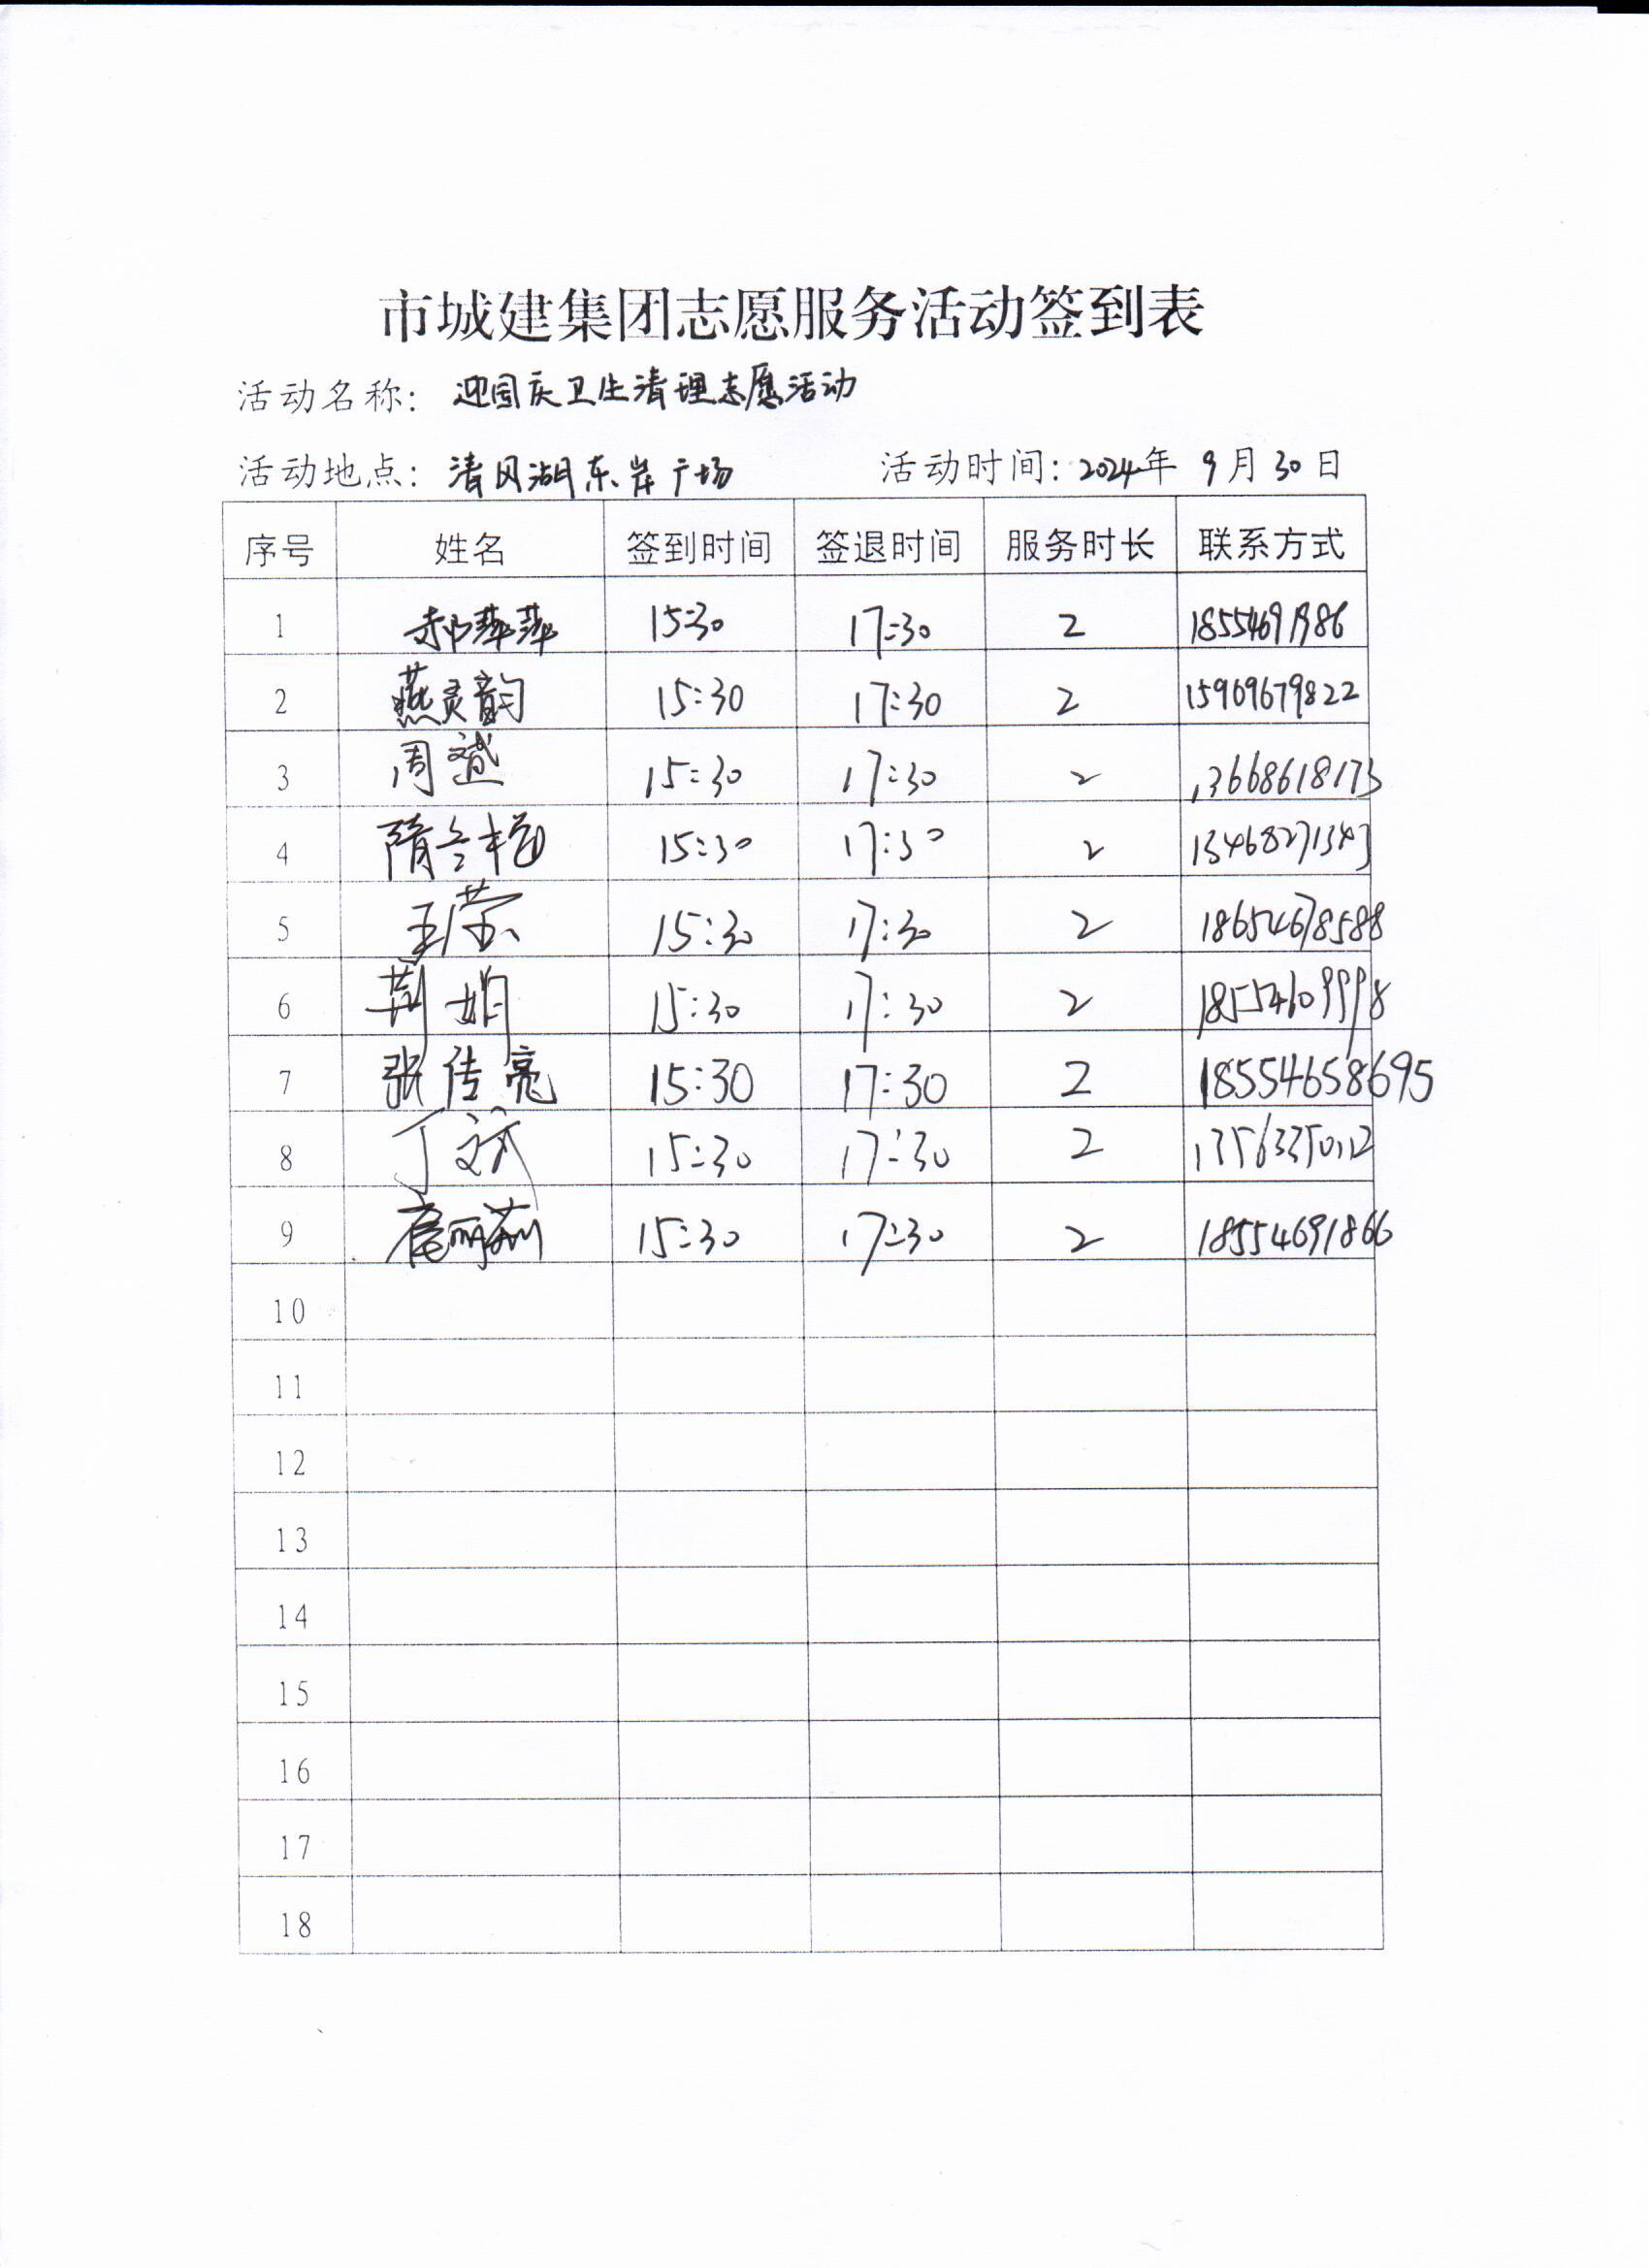 市城建集团志愿服务活动签到表
活动名称: 迎国庆卫生清理志愿活动
活动地点: 清风湖东岸广场 活动时间: 2024年 9月30日
序号 姓名 签到时间 签退时间 服务时长 联系方式
1 郝萍萍 15:30 17:30 2 18554691986
2 燕灵韵 15:30 17:30 2 15909679822
3 周 15:30 17:30 2 13668618173
4 隋 15:30 17:30 2 13468271343
5 王荣 15:30 17:30 2 18654678588
6 荆娟 15:30 17:30 2 18554609998
7 张传亮 15:30 17:30 2 18554658695
8 丁文斌 15:30 17:30 2
9 丽莉 15:30 17:30 2 18554691866
10
11
12
13
14
15
16
17
18